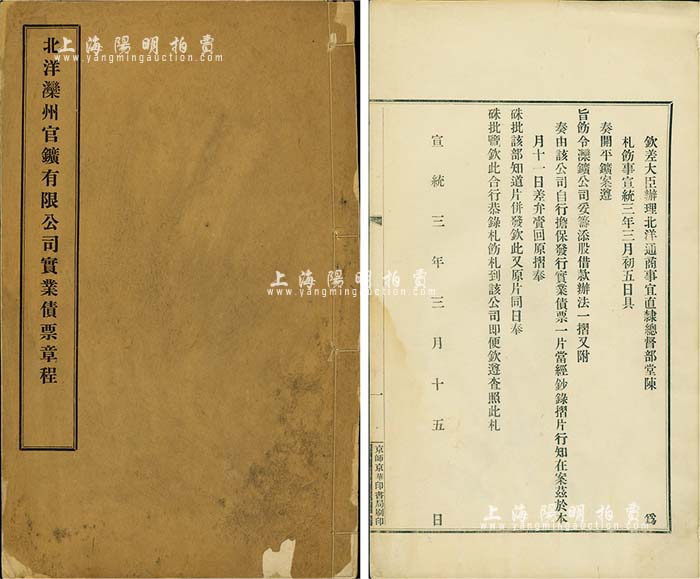 北洋灤州官鑛有限公司實業債票章程
欽差大臣辦理北洋通商事宜直隸總督部堂陳 為
札飭事宣統三年三月初五日具
奏開平鑛案遵
旨飭令灤鑛公司妥籌添股借款辦法一摺又附
奏由該公司自行擔保發行實業債票一片當經鈔錄摺片行知在案茲於本
月十一日差弁賫回原摺奉
硃批該部知道片併發欽此又原片同日奉
硃批覽欽此合行恭錄札飭札到該公司即便欽遵查照此札
宣統三年三月十五日
一
京師京華印書局刷印
上海陽明拍賣
www.yangmingauction.com
上海陽明拍賣
www.yangmingauction.com
上海陽明拍賣
www.yangmingauction.com
上海陽明拍賣
www.yangmingauction.com